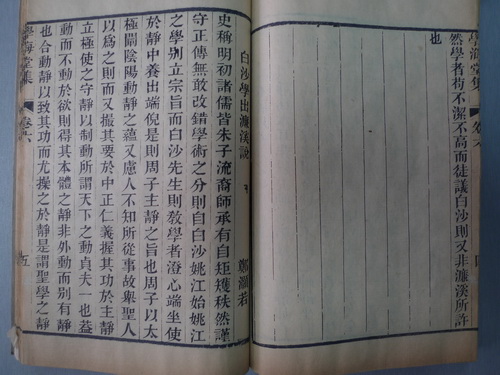 學海堂集
卷六
然學者苟不潔不高而徒議白沙則又非濂溪所許
也
白沙學出濂溪說
鄭灝若
史稱明初諸儒皆朱子流裔師承有自矩矱秩然謹
守正傳無敢改錯學術之分則自白沙姚江始姚江
之學別立宗旨而白沙先生則教學者澄心端坐使
於靜中養出端倪是則周子主靜之旨也周子以太
極闡陰陽動靜之蘊又慮人不知所從事故舉聖人
以為之則而又擬其要於中正仁義握其功於主靜
立極使之守靜以制動所謂天下之動貞夫一也蓋
動而不動於欲則得其本體之靜非外動而別有靜
也合動靜以致其功而尤操之於靜是謂聖學之靜
學海堂集
卷六
五